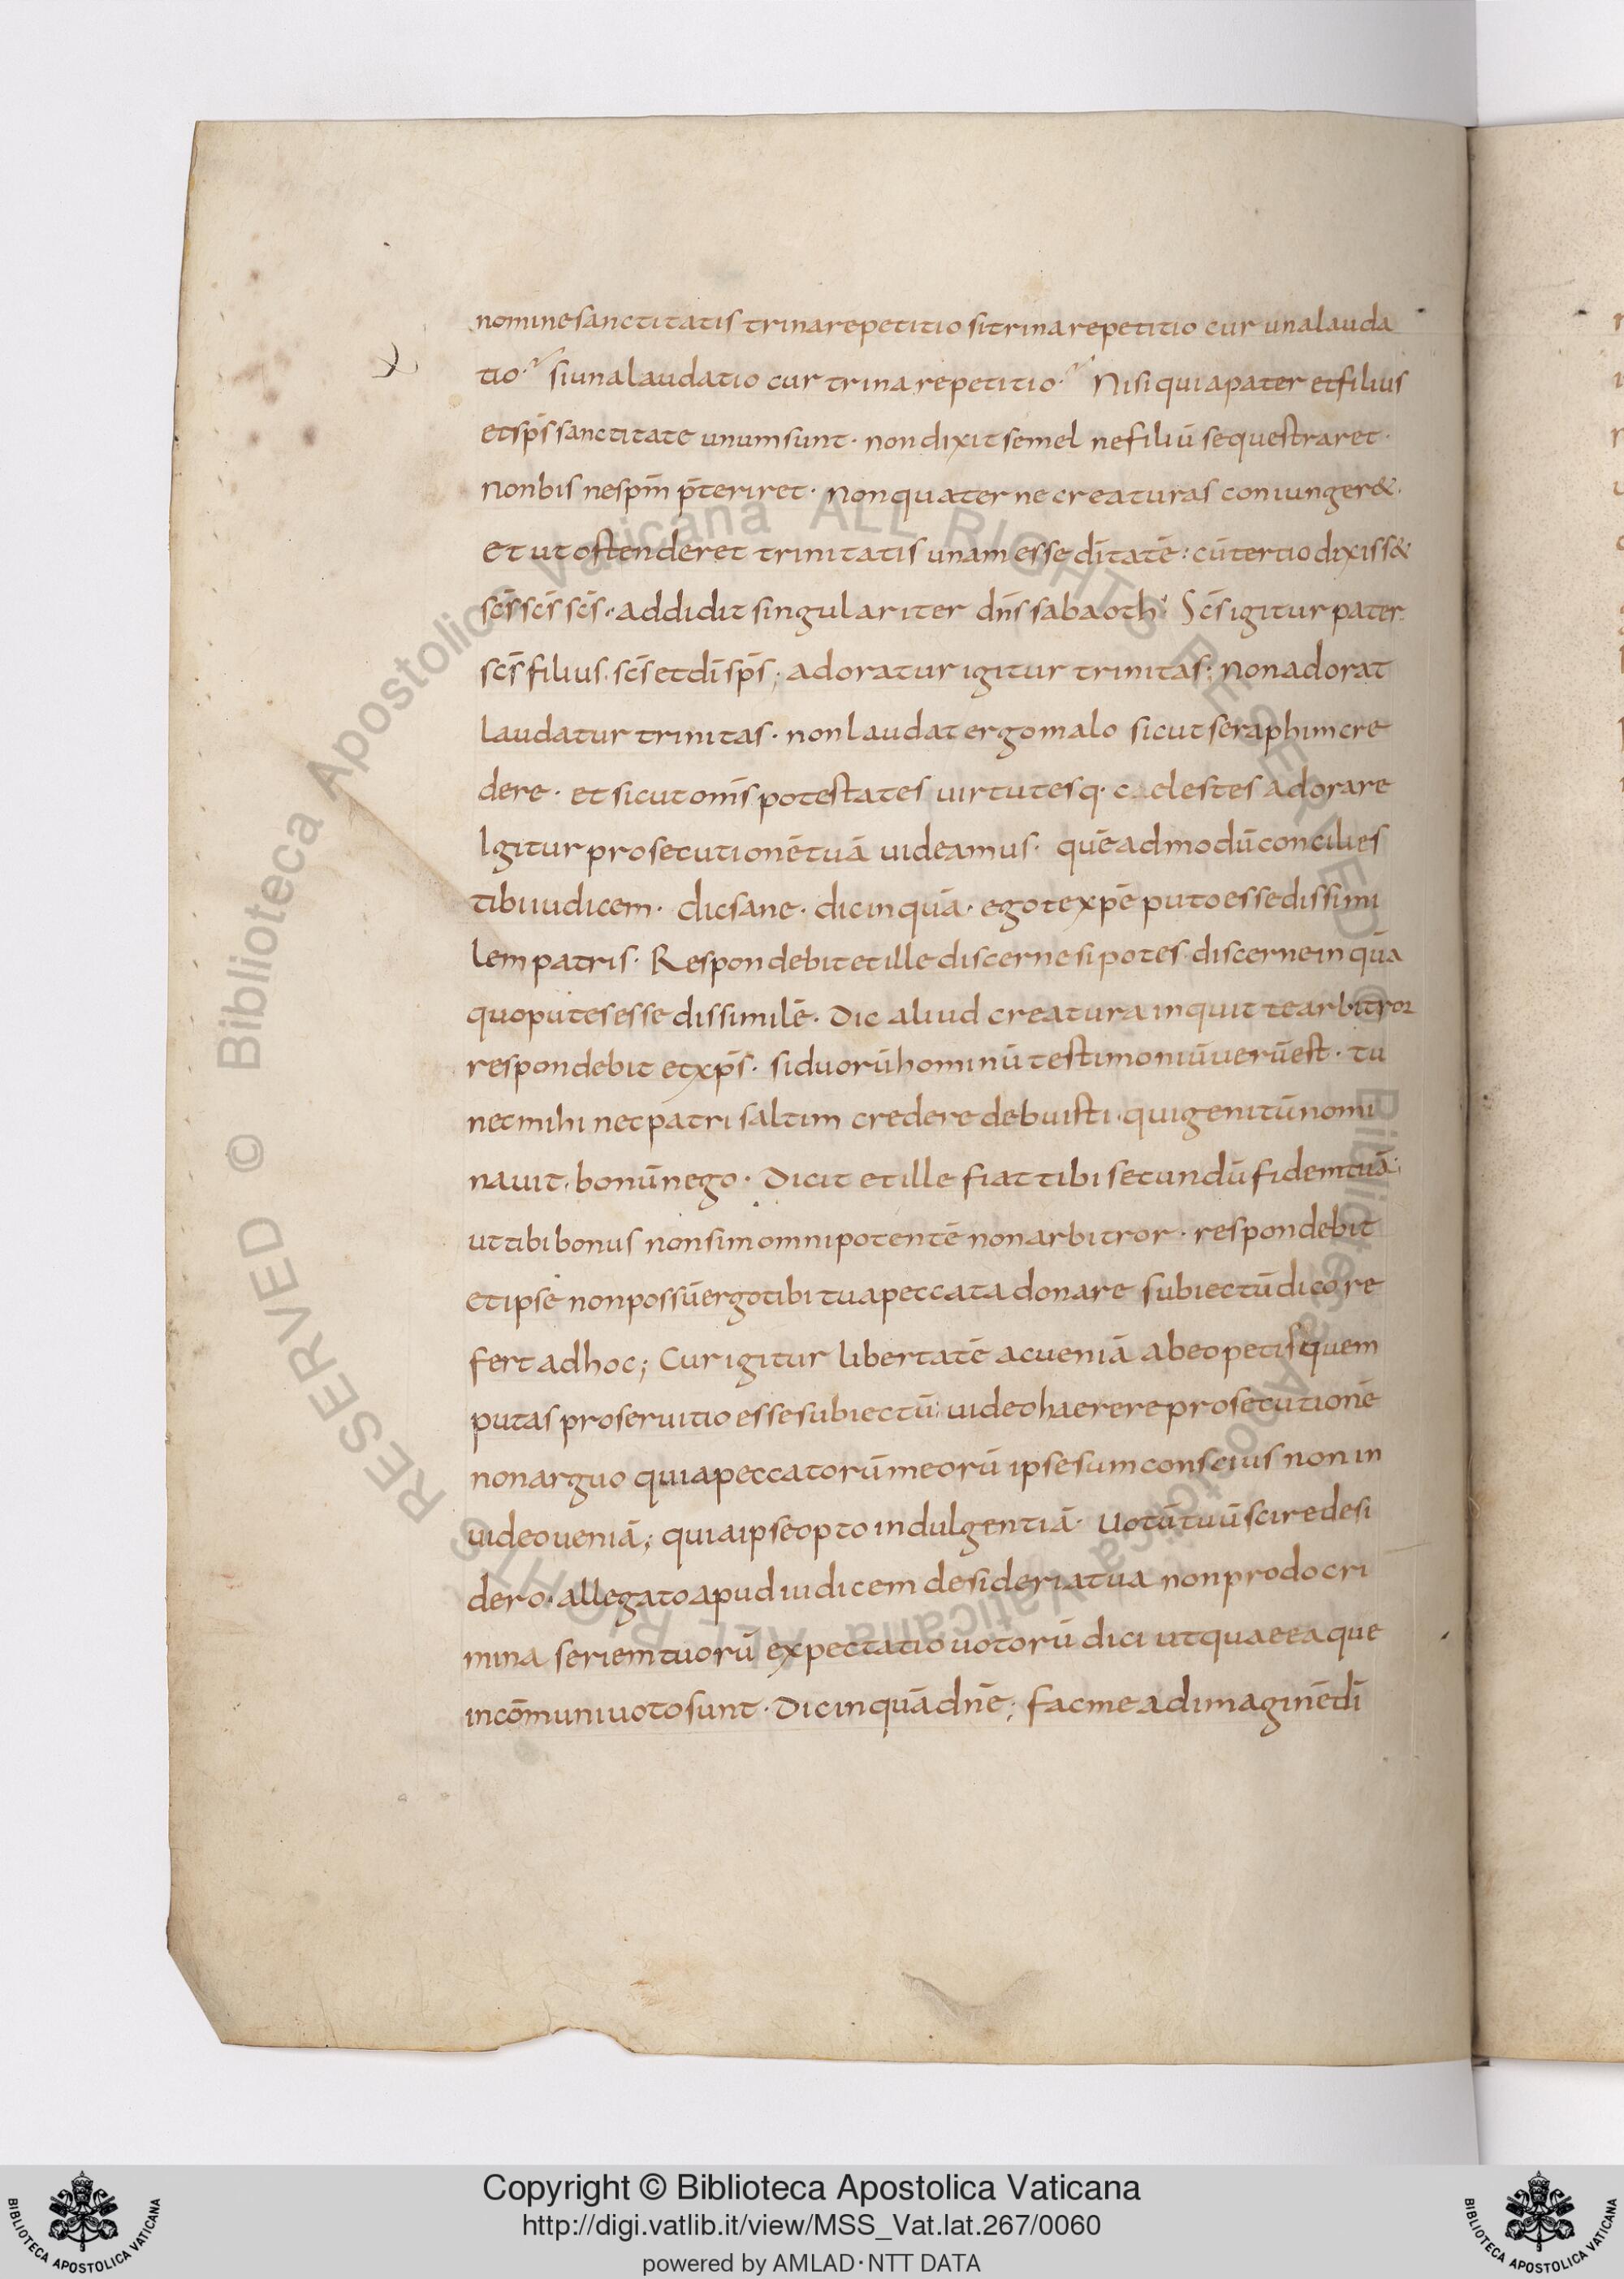 nomine sanctitatis trina repetitio si trina repetitio cur una lauda
tio·? si una laudatio cur trina repetitio·? Nisi quia pater et filius
et sp̅s sanctitate unum sunt· non dixit semel ne filiū sequestraret·
Non bis ne sp̅m p̅teriret· Non quater ne creaturas coniunger&·
Et ut ostenderet trinitatis unam esse dītatē: cū tertio dixiss&
sc̅s sc̅s sc̅s· addidit singulariter dn̅s sabaoth· Sc̅s igitur pater·
sc̅s filius· sc̅s et dī sp̅s; adoratur igitur trinitas; Non adorat
laudatur trinitas· non laudat ergo malo sicut seraphim cre
dere· et sicut om̅s potestates uirtutesq· caelestes adorare
Igitur prosecutionē tuā uideamus· quē ad modū concilies
tibi iudicem· dic sane· dic inquā· ego te xp̅e puto esse dissimi
lem patris· Respondebit et ille discerne si potes· discerne inquā
quo putes esse dissimilē· Dic aliud creatura inquit te arbitror
respondebit et xp̅s· si duorū hominū testimoniū uerū est· tu
nec mihi nec patri saltim credere debuisti· qui genitū nomi
nauit· bonū nego· Dicit et ille fiat tibi secundū fidem tuā·
ut tibi bonus non sim omnipotentē non arbitror· respondebit
et ipse non possū ergo tibi tua peccata donare subiectū dico re
fert ad hoc; Cur igitur libertatē ac ueniā ab eo petis quem
putas pro seruitio esse subiectū; uideo haerere prosecutionē
non arguo quia peccatorū meorū ipse sum conscius non in
uideo ueniā; quia ipse opto indulgentiā· Uotū tuū scire desi
dero· allegato apud iudicem desideria tua non prodo cri
mina seriem tuorū expectatio uotorū dici ut quae ea que
in cōmuni uoto sunt· Dic inquā dn̅e; fac me ad imaginē dī
© Biblioteca Apostolica Vaticana ALL RIGHTS RESERVED © Biblioteca Apostolica Vaticana ALL RIGHTS RESERVED
BIBLIOTECA APOSTOLICA VATICANA
Copyright © Biblioteca Apostolica Vaticana
http://digi.vatlib.it/view/MSS_Vat.lat.267/0060
powered by AMLAD·NTT DATA
BIBLIOTECA APOSTOLICA VATICANA